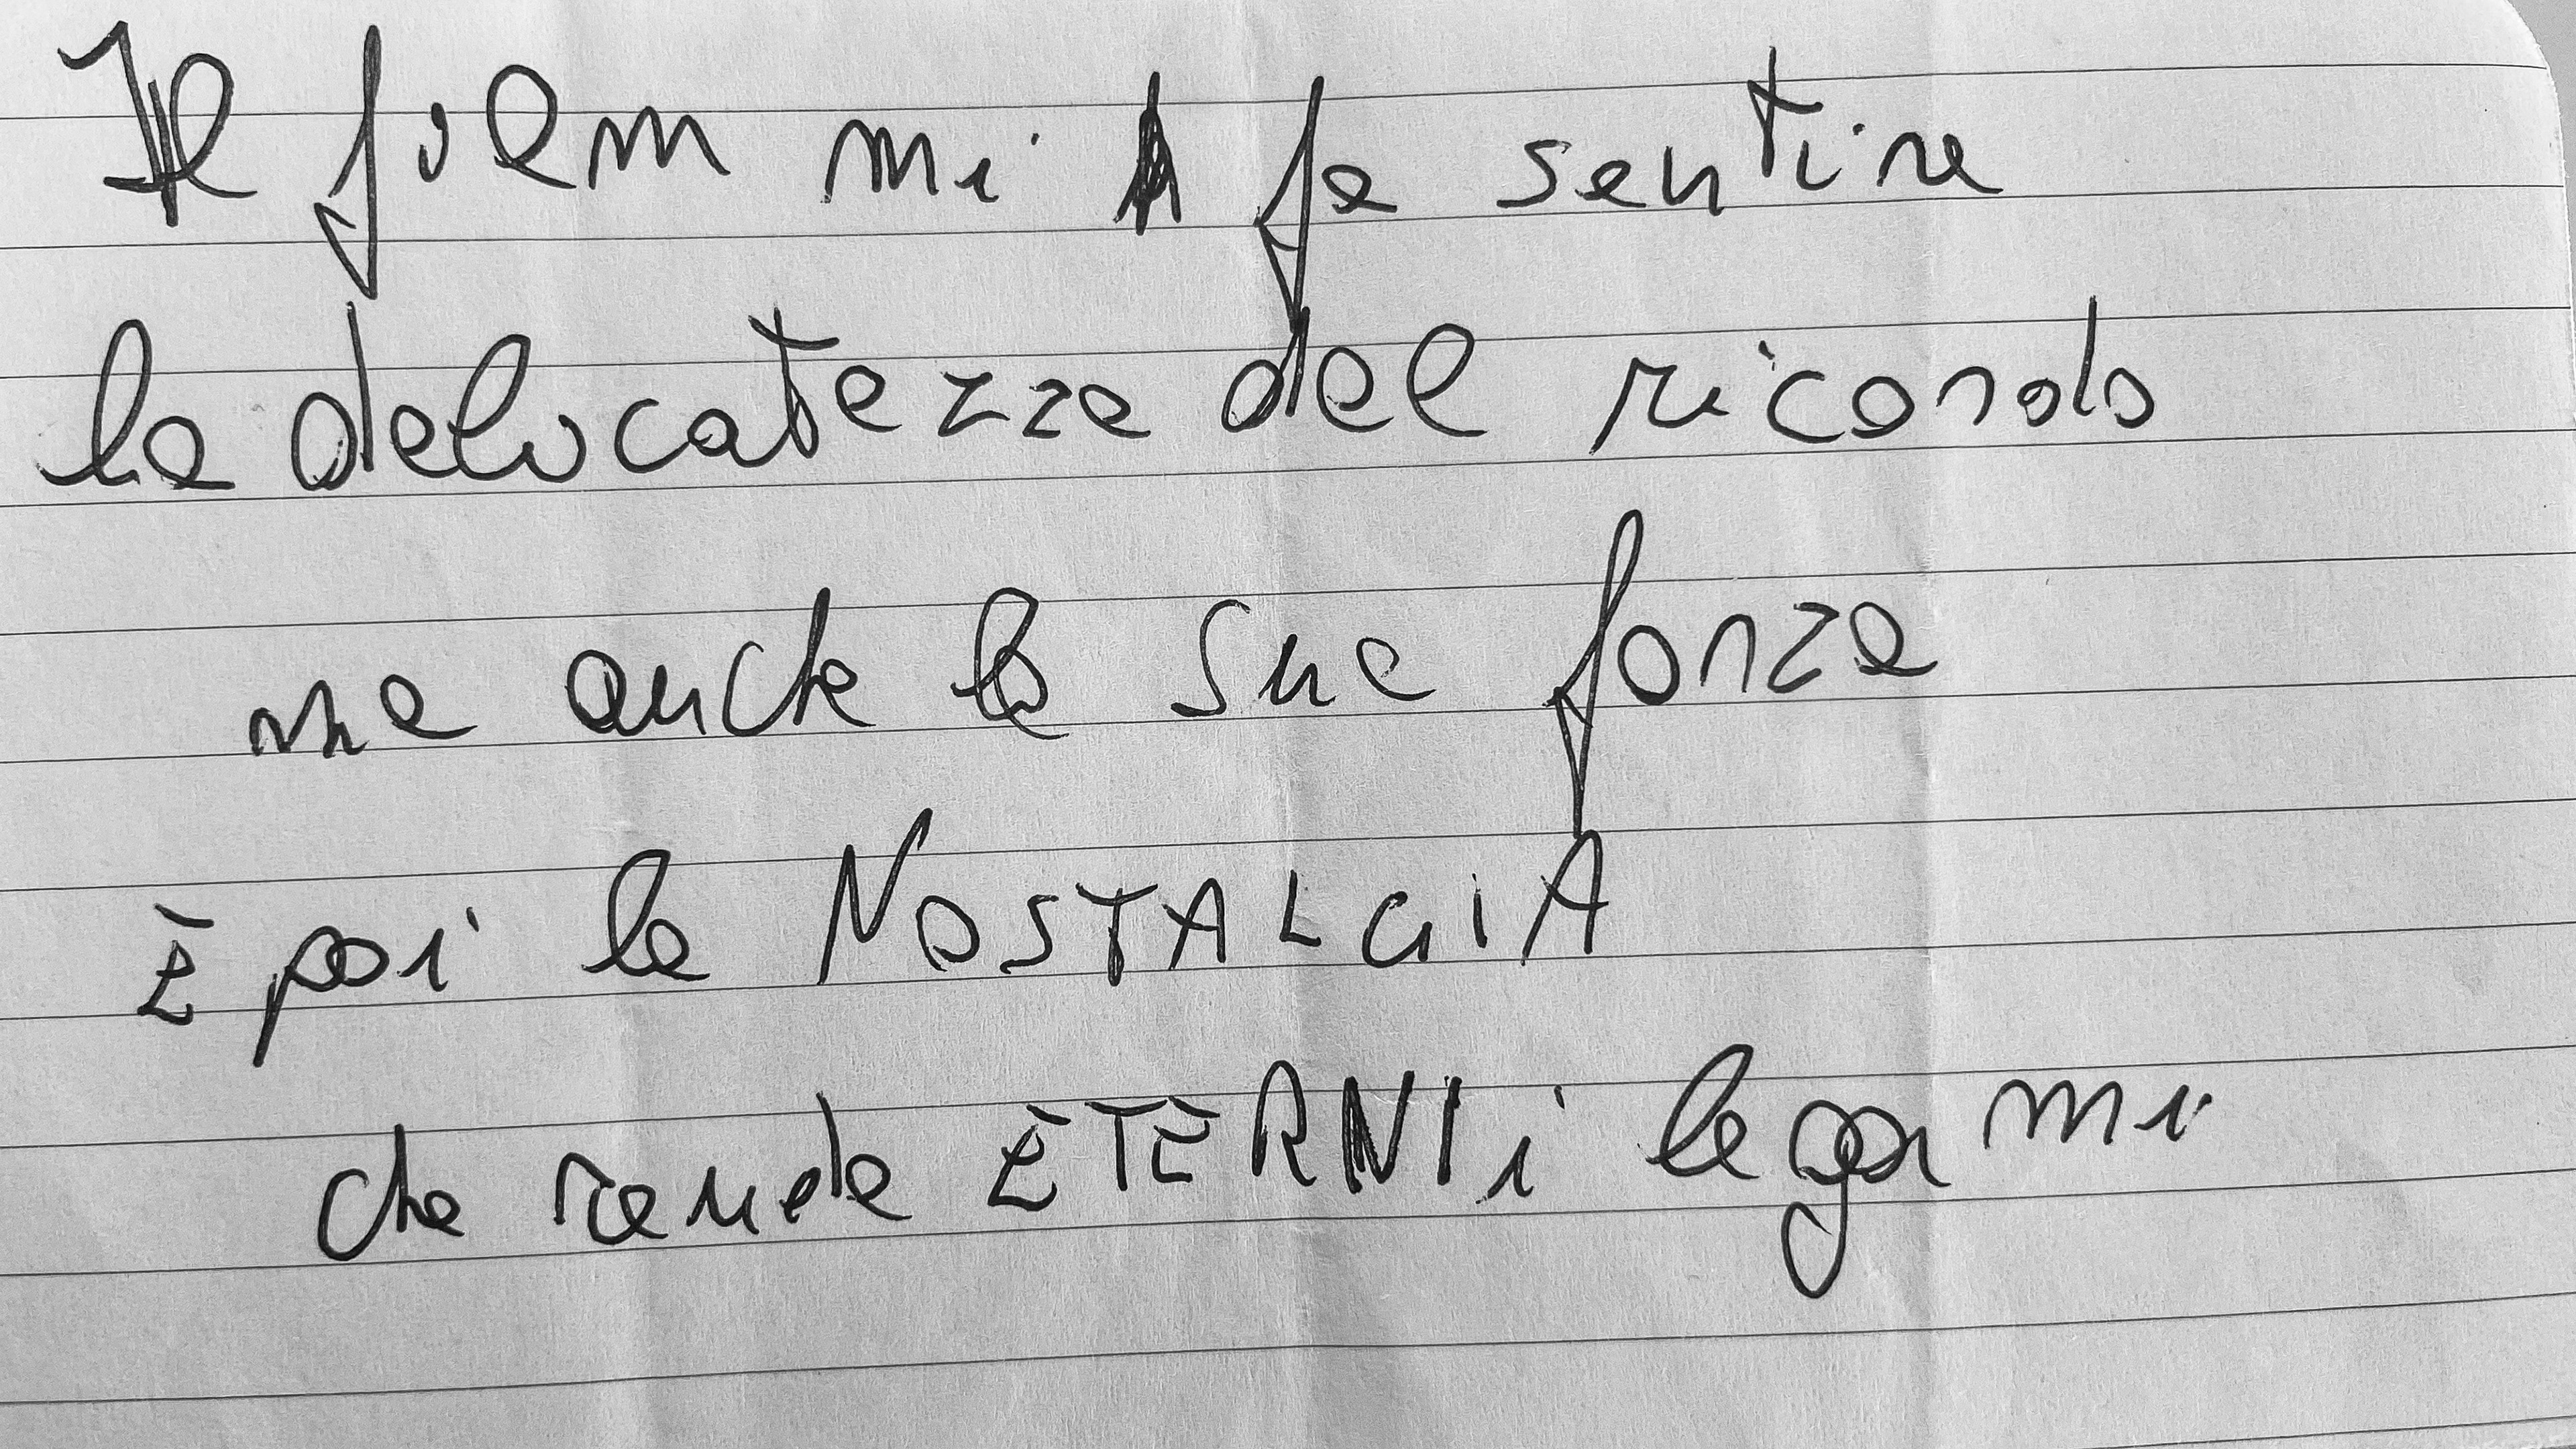 Il film mi fa sentire
la delicatezza del ricordo
ma anche la sua forza
È poi la NOSTALGIA
che rende ETERNI i legami